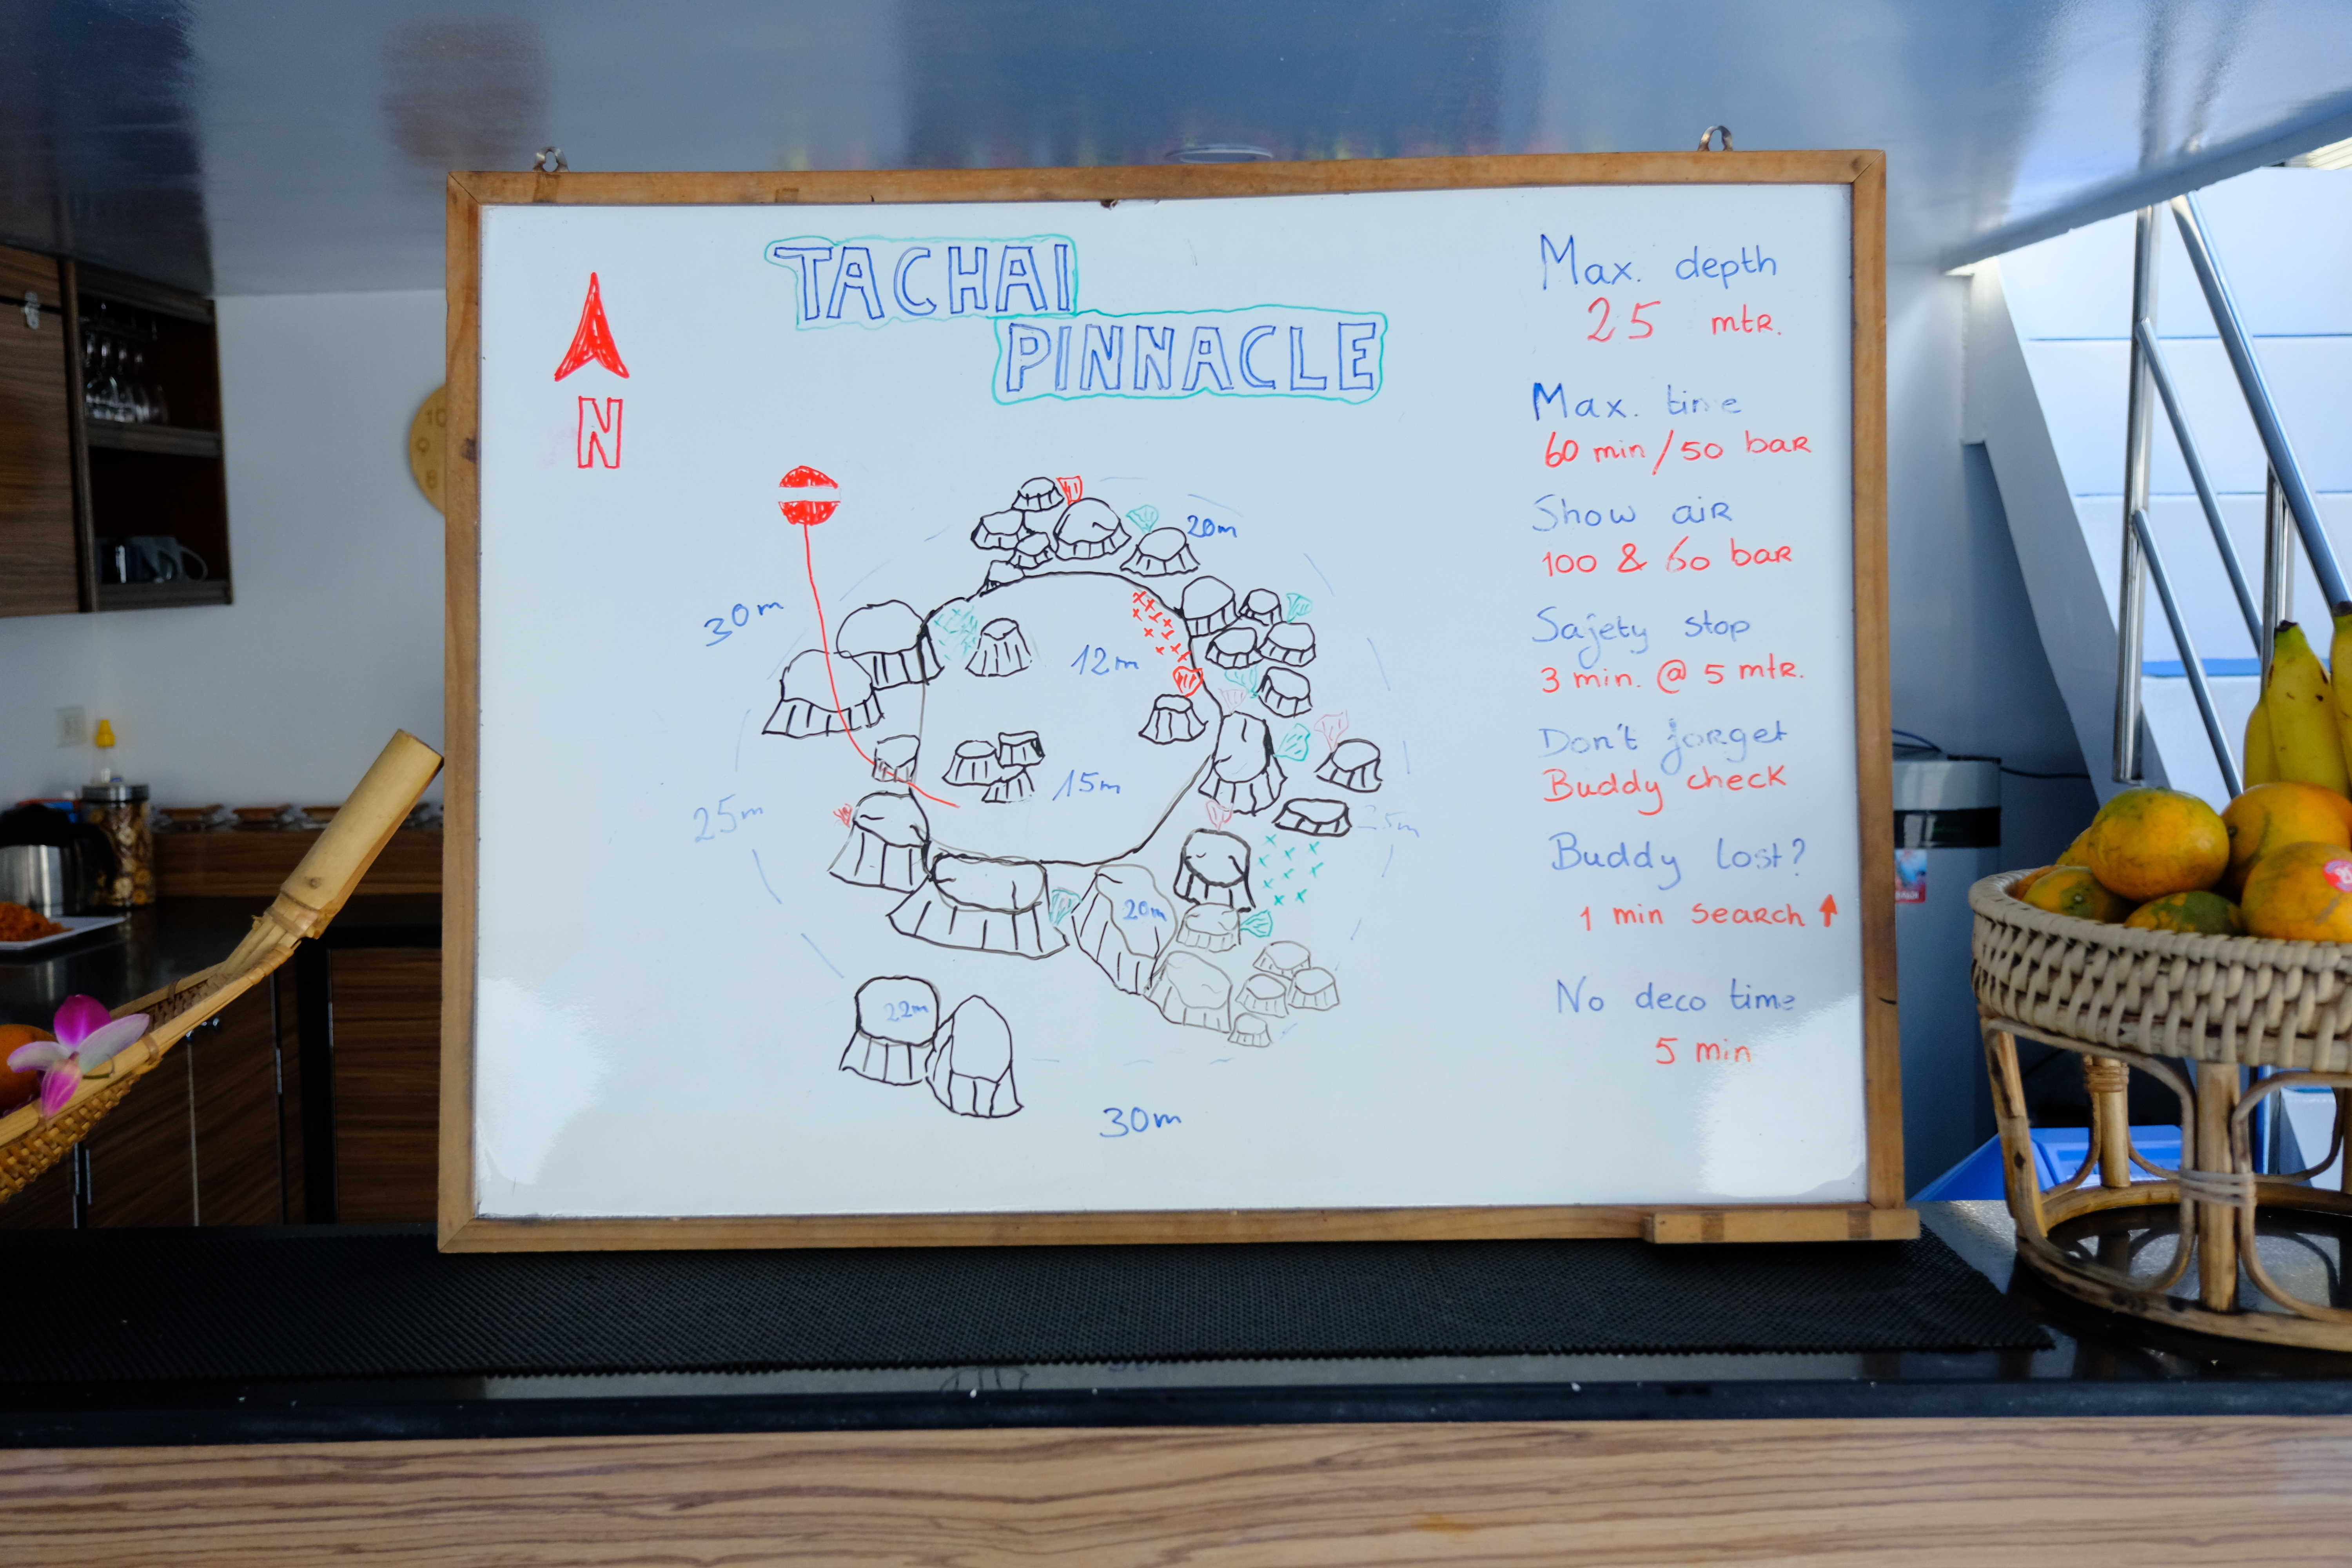 TACHAI
PINNACLE
N
20m
30m
12m
15m
25m
25m
20m
22m
30m
Max. depth
25 mtr.
Max. time
60 min/50 bar
Show air
100 & 60 bar
Safety stop
3 min. @ 5 mtr.
Don't forget
Buddy check
Buddy lost?
1 min search ↑
No deco time
5 min
10
9
8